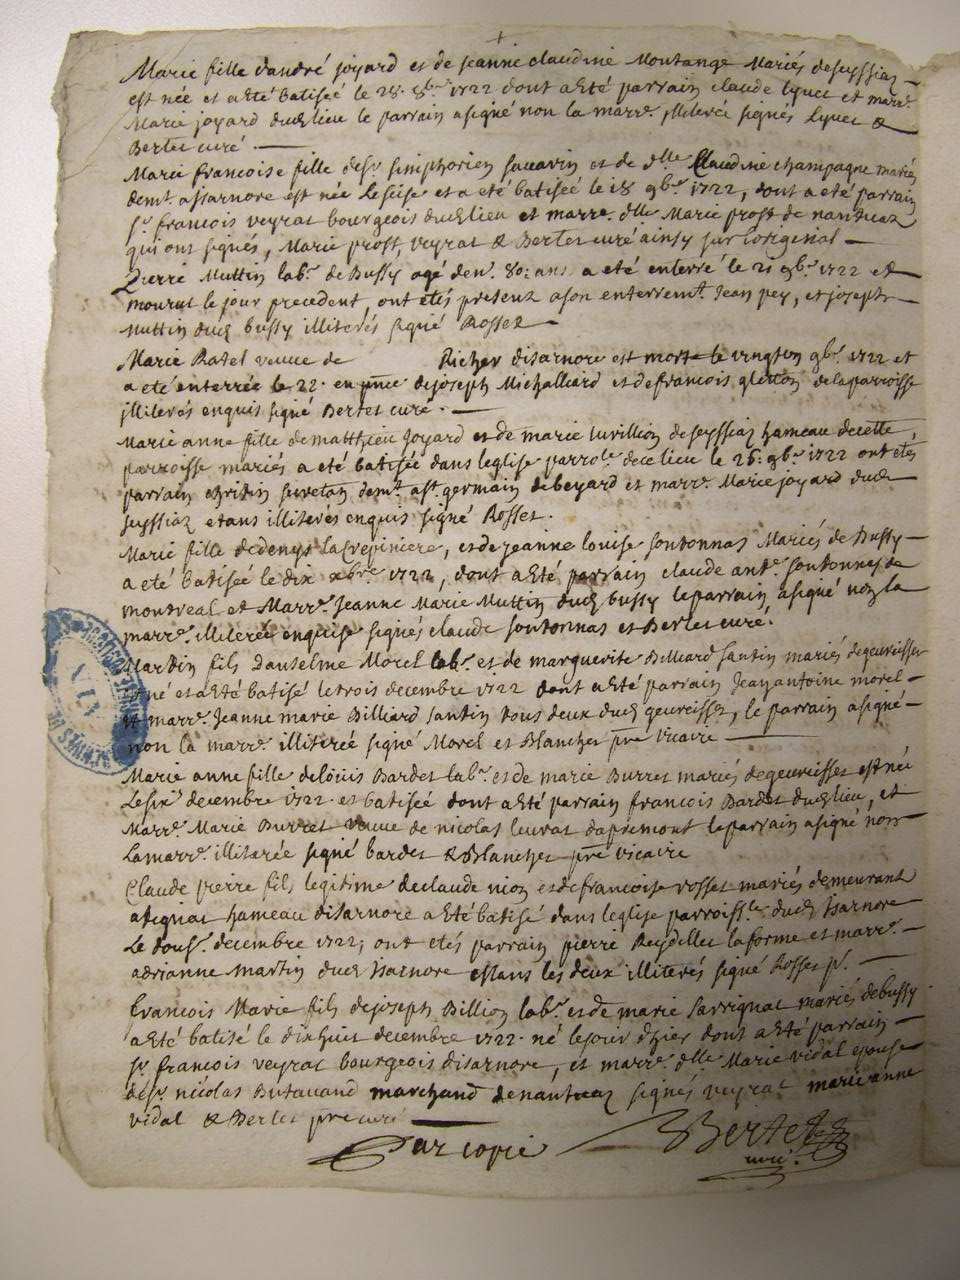 Marie fille d'andré joyard et de jeanne claudine Montange Mariés de seyssiaz
est née et a Eté batiseé le 28. 8bre. 1722 dont a Eté parrain claude lyvet et marre.
Marie joyard dud. lieu le parrain a signé non la marre. illiterée signés Lyvet &
Bertet curé.
Marie francoise fille de sr. simphorien savarin et de dlle. Claudine champagne mariés
demt. a Isarnore est née Le seise et a eté batiseé le 18 9bre. 1722, dont a eté parrain
sr. francois veyrat bourgeois dud. lieu et marre. dlle Marie prost de nantuaz
qui ont signés, Marie prost, veyrat & Bertet curé ainsy sur l'original
Pierre Muttin labr. de Bussy agé den. 80: ans a eté enterré le 21 9bre. 1722 et
mourut le jour precedent, ont etés present a son enterremt. Jean pey, et joseph
Muttin dud. bussy illiterés signé Rosset
Marie Ratel veuve de Richer disarnore est morte le vingt un 9bre. 1722 et
a eté enterreé le 22. en pnce de joseph Michalliard et de francois de la parroisse
illiterés enquis signé Bertet curé.
Marie anne fille de matthieu Joyard et de marie tuvillion de seyssiaz hameau de cette
parroisse mariés a eté batiseé dans leglise parrole. de ce lieu le 26: 9bre. 1722 ont etés
parrain demt. a st. germain de beyard et marre. Marie joyard dud.
seyssiaz etans illiterés enquis signé Rosset.
Marie fille de denys la Crepiniere, et de jeanne louise sontonnas Mariés de Bussy
a eté batiseé le dix xbre. 1722, dont a Eté parrain claude ante. sontonnas de
montreal et Marre. Jeanne Marie Muttin dud. bussy le parrain a signé non la
marre. illiterée enquise signés claude sontonnas et Bertet curé.
Martin fils danselme Morel labr. et de marguerite Billiard santin mariés de geureissez
est né et a Eté batisé le trois decembre 1722 dont a Eté parrain Jean antoine morel
et marre. Jeanne marie Billiard santin tous deux dud. geureissez, le parrain a signé
non la marre. illiterée signé Morel et Blanchet pre vicaire
Marie anne fille de loüis Bardet labr. et de marie Burret mariés de geureisset est neé
Le six decembre 1722. et batiseé dont a Eté parrain francois Bardet dud. lieu, et
Marre. Marie Burret veuve de nicolas levrat dapremont le parrain a signé non
La marre. illiterée signé bardet & Blanchet pre vicaire
Claude pierre fils legitime de claude nion et de francoise rosset mariés demeurant
a hameau disarnore a Eté batisé dans leglise parroissle. dud. Isarnore
Le dousr. decembre 1722; ont etés parrain pierre Reydellet laforme et marre.
adrianne Martin dud. Isarnore estans les deux illiterés signé Rosset pr.
francois Marie fils de joseph Billion labr. et de marie savrignat mariés de bussy
a Eté batisé le dix huit decembre 1722. né le soir d'hier dont a Eté parrain
sr. francois veyrat bourgeois disarnore, et marre. dlle. Marie vidal epouse
de sr. nicolas Butavand marchand de nantuaz signés veyrat marie anne
vidal & Bertet pre curé
Par copie
Bertet
curé.